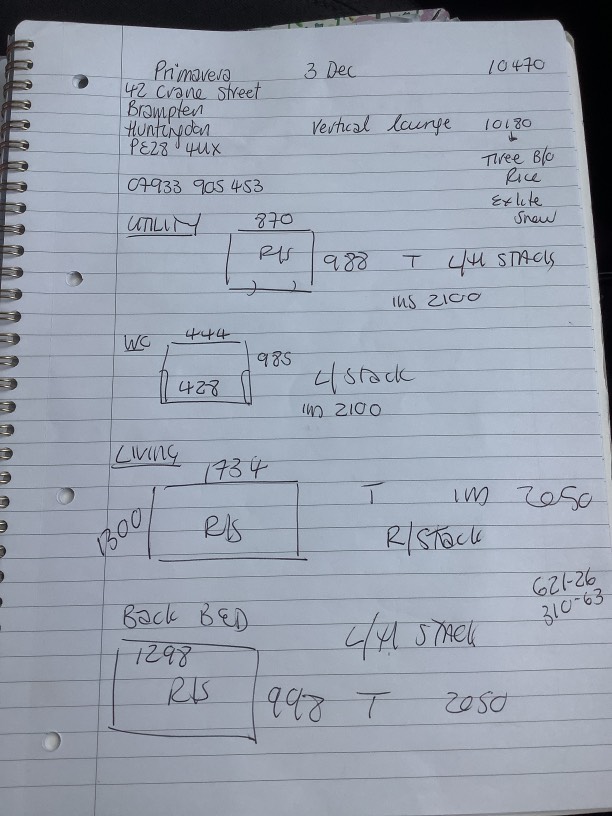 Primavera 3 Dec 10470
42 Crane Street
Brampten
Huntingdon Vertical lounge 10180
PE28 4UX
Three B/o
Rice
07933 905 453
Exlite
Snow
UTILITY 870
R/S 988 T L/H STACK
ins 2100
WC 444
985
428 L/Stack
im 2100
Living 1734
1300 R/S T im 2050
R/Stack
621-26
310-63
Back BED
L/H STACK
1298
R/S 998 T 2050